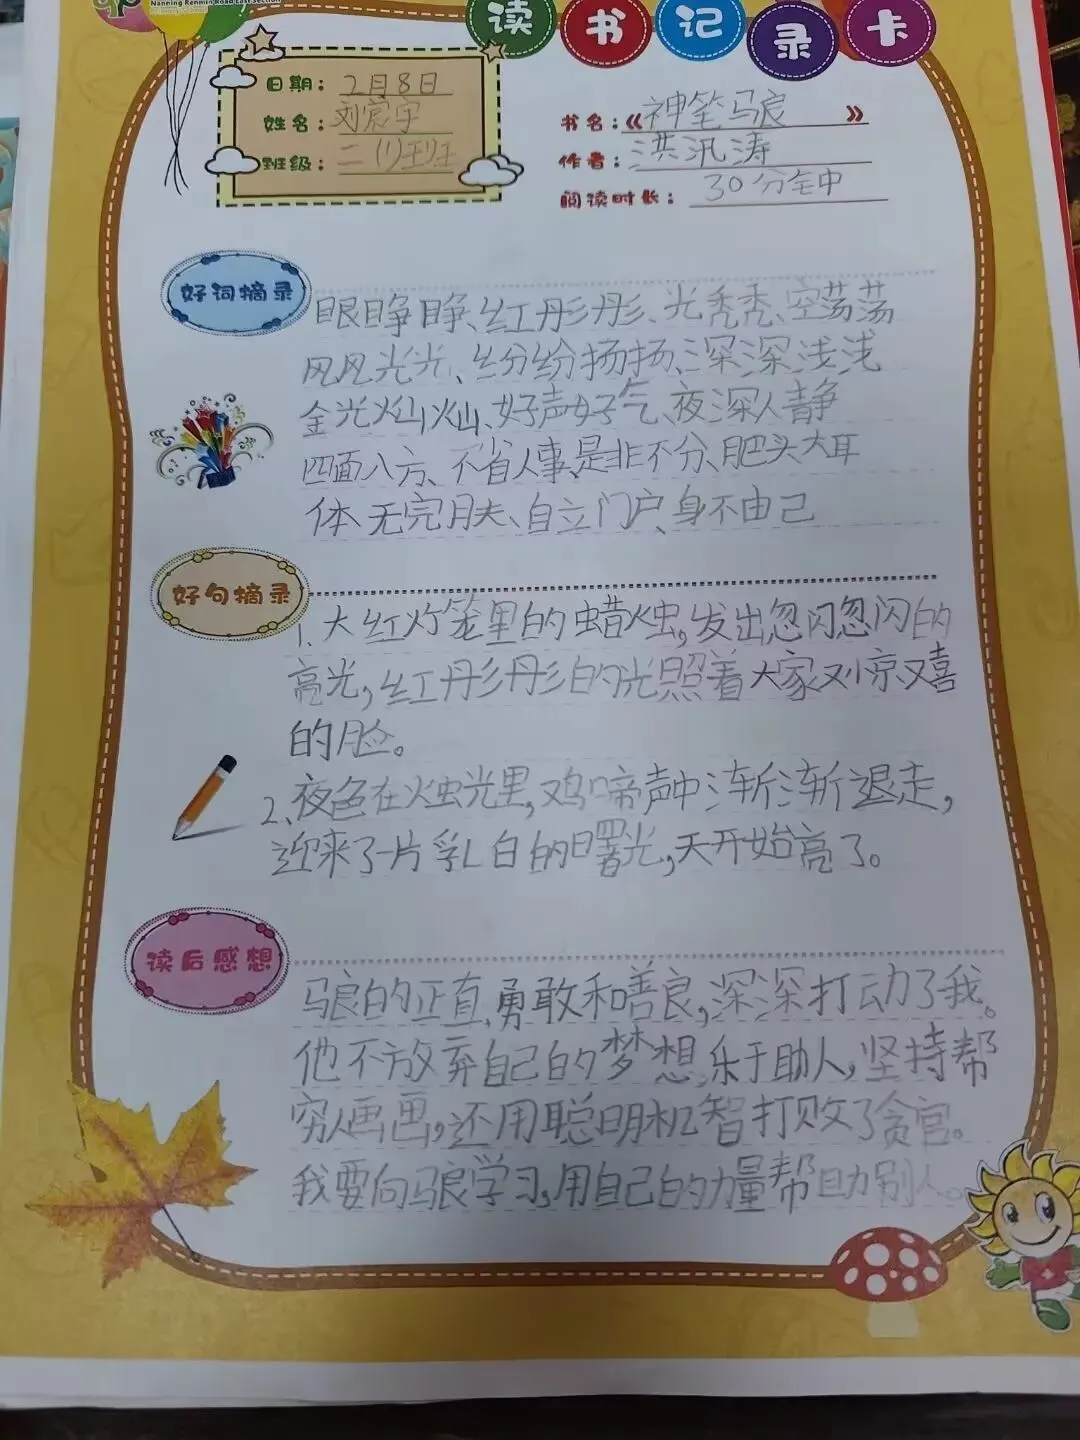 Nanning Renmin Road East Section
读书记录卡
日期：2月8日
姓名：刘宸宇
班级：二（1）班
书名：《神笔马良》
作者：洪汛涛
阅读时长：30分钟
好词摘录
眼睁睁、红彤彤、光秃秃、空荡荡
风风光光、纷纷扬扬、深深浅浅
金光灿灿、好声好气、夜深人静
四面八方、不省人事、是非不分、肥头大耳
体无完肤、自立门户、身不由己
好句摘录
1、大红灯笼里的蜡烛，发出忽闪忽闪的
亮光，红彤彤的光照着大家又惊又喜
的脸。
2、夜色在烛光里，鸡啼声中渐渐退走，
迎来了一片乳白的曙光，天开始亮了。
读后感想
马良的正直、勇敢和善良，深深打动了我。
他不放弃自己的梦想，乐于助人，坚持帮
穷人画画，还用聪明机智打败了贪官。
我要向马良学习，用自己的力量帮助别人。